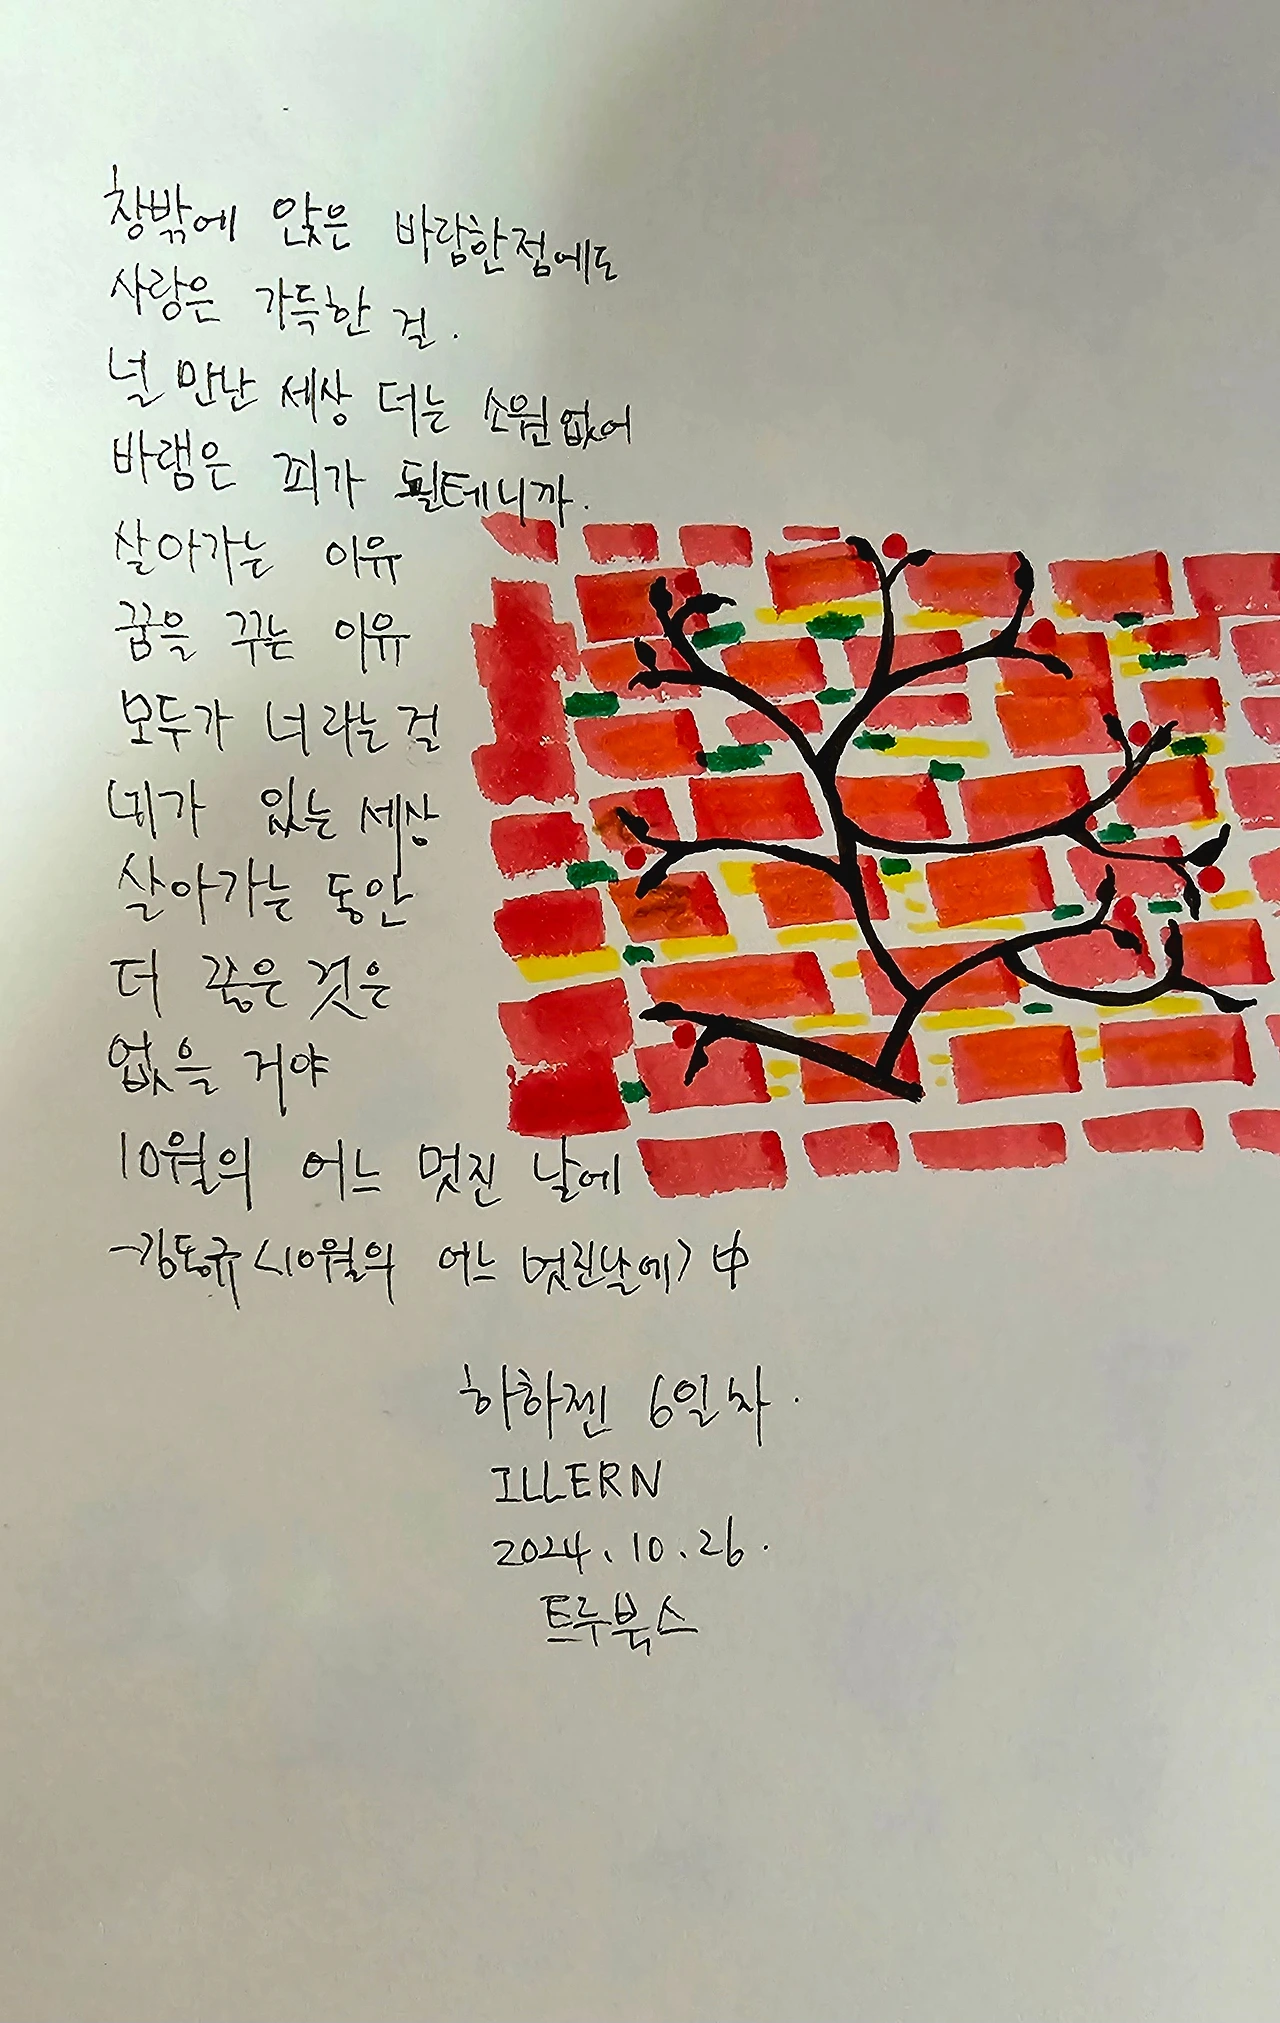 창밖에 앉은 바람한점에도
사랑은 가득한 걸.
널 만난 세상 더는 소원없어
바램은 죄가 될테니까.
살아가는 이유
꿈을 꾸는 이유
모두가 너라는걸
네가 있는 세상
살아가는 동안
더 좋은 것은
없을 거야
10월의 어느 멋진 날에
-김동규<10월의 어느 멋진날에>中
하하젠 6일차.
ILLERN
2024.10.26.
트루북스